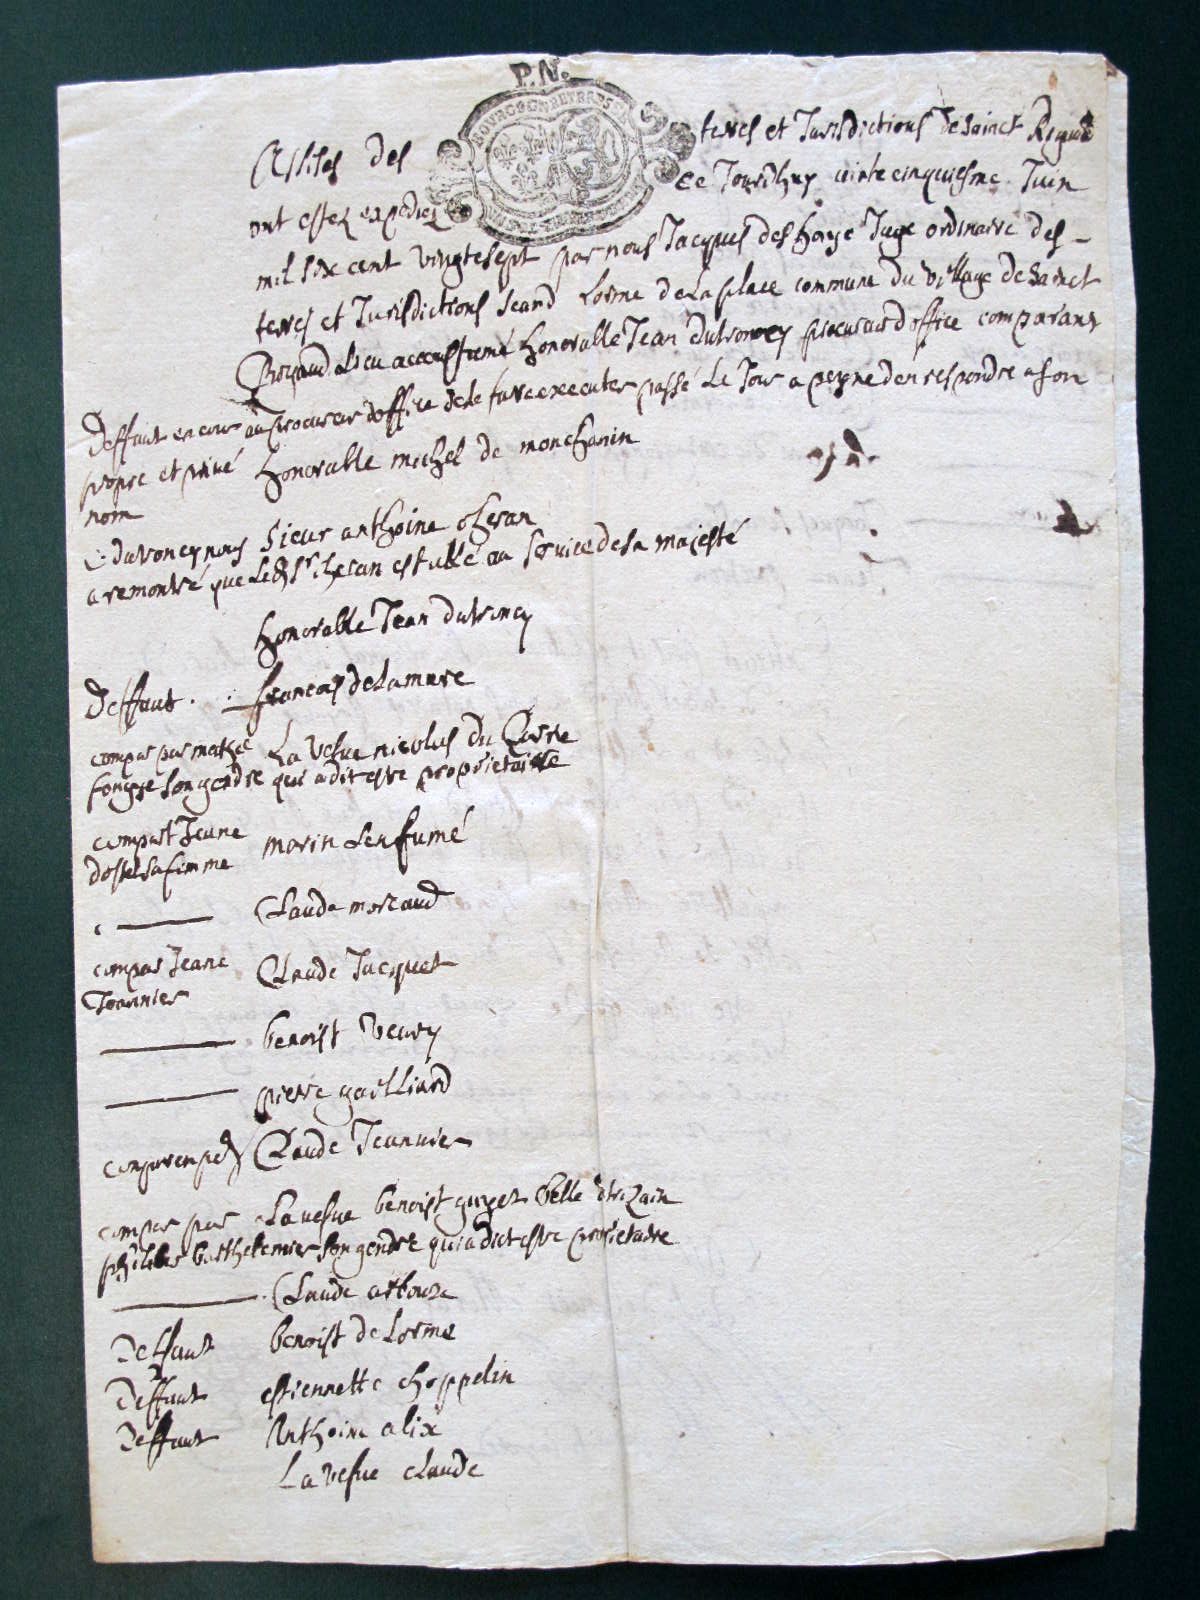 P.N.
BOVRGOGNE BERRES
Assises des terres et Jurisdictions de sainct Rigaud
ont estez expediez ce Jourdhuy vinte cinquiesme Juin
mil six cent vingt sept par nous Jacques deshaye Juge ordinaire des
terres et Jurisdictions Seand Lorme de La place commune du village de sainct
Rigaud Lieu accoustumé honorable Jean dutroncy procureur d office comparant
Deffaut encour au procureur doffice de le faire executer passé Le Jour a peyne den respondre a son
propre et privé honorable michel de monchanin
nom
dutroncy nous Sieur anthoine cheran
a remontré que Led Sr cheran est allé au service de sa majesté
honorable Jean dutroncy
Deffaut francois de Lamure
compar par mathe La vefue nicolas du Carre
son gendre qui a dit estre proprietaire
compart Jeane marin Lenfumé
dostel sa femme
Claude moreaud
compar Jeane Claude Jacquet
Joannier
benoist veury
pierre gailliard
compar en pe Claude Jeannier
compar par La vefue benoist guyet
philiber barthelemier son gendre qui a dict estre proprietaire
Claude arbouze
Deffaut benoist de Lorme
deffaut estiennette choppelin
deffaut Anthoine alix
La vefue claude